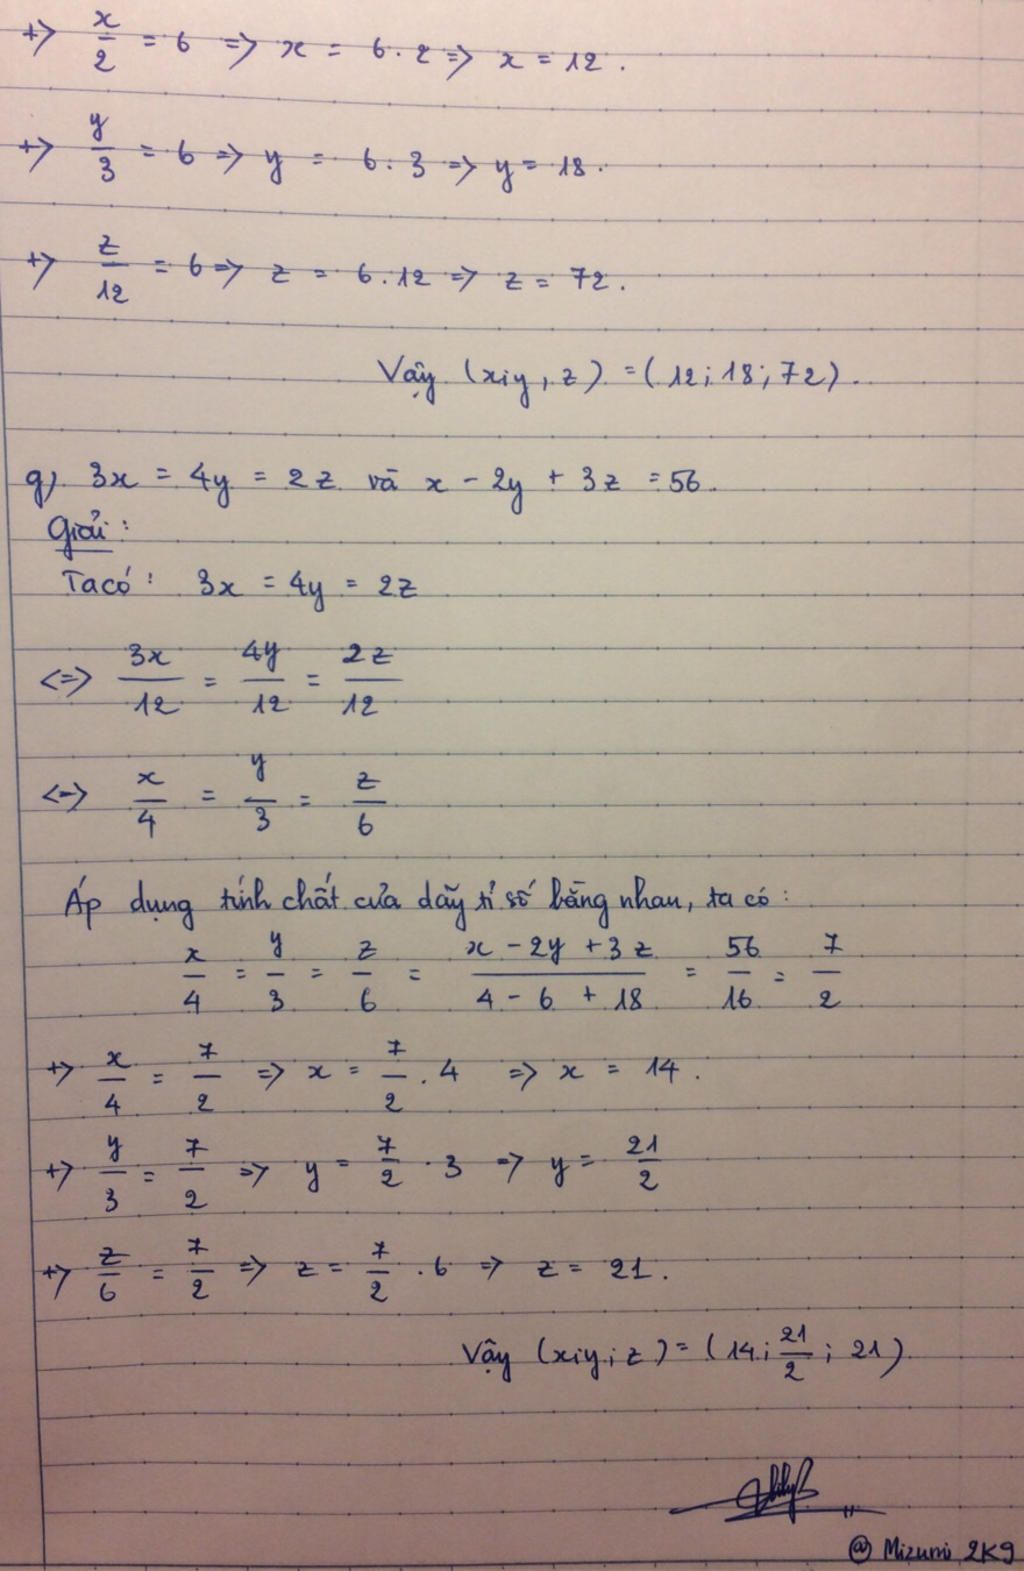 +> x/2 = 6 => x = 6.2 => x = 12.
+> y/3 = 6 => y = 6.3 => y = 18.
+> z/12 = 6 => z = 6.12 => z = 72.
Vậy (x;y,z) = (12;18;72).
g) 3x = 4y = 2z và x - 2y + 3z = 56.
Giải:
Ta có: 3x = 4y = 2z
<=> 3x/12 = 4y/12 = 2z/12
<=> x/4 = y/3 = z/6
Áp dụng tính chất của dãy tỉ số bằng nhau, ta có:
x/4 = y/3 = z/6 = (x - 2y + 3z)/(4 - 6 + 18) = 56/16 = 7/2
+> x/4 = 7/2 => x = 7/2 . 4 => x = 14.
+> y/3 = 7/2 => y = 7/2 . 3 => y = 21/2
+> z/6 = 7/2 => z = 7/2 . 6 => z = 21.
Vậy (x;y;z) = (14; 21/2; 21)
@ Mizumi 2K9